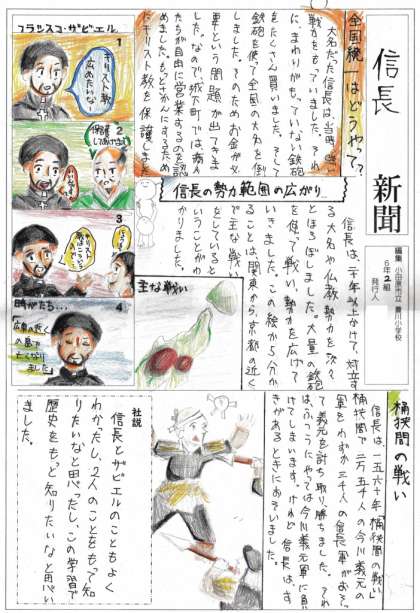 信長 新聞
編集 小田原市立 豊川小学校
6年2組
発行人
全国統一はどうやって?
大名だった信長は、当時、強い
戦力をもっていました。それ
に、まわりがもっていない鉄砲
をたくさん買いました。そして
鉄砲を使って全国の大名を倒
しました。そのためお金が必
要という問題が出てきま
した。なので、城下町では、商人
たちが自由に営業するのを認
めました。もっとさかんにするため
にキリスト教を保護しました
フランシスコ・ザビエル
1
キリスト教
広めたいな
2
保護
してあげよう
3
キリスト
4
時がたち…
広東の近く
の島で
亡くなりました
信長の勢力範囲の広がり
信長は、二十年以上かけて、対立す
る大名や仏教勢力を次々
とほろぼしました。大量の鉄砲
を使って戦い、勢力を広げて
いきました。この絵から分か
ることは、関東から、京都の近く
で主な戦い
をしていると
いうことがわ
かりました。
主な戦い
桶狭間の戦い
信長は、一五六十年「桶狭間の戦い」
桶狭間で二万五千人の今川義元の
軍をわずか三千人の信長軍がおそっ
て義元を討ち取り、勝ちました。それ
は、ふつうにやっては今川義元軍に負
けてしまいます。けれど信長は、す
きがあるときにおそいました。
社説
信長とザビエルのこともよく
わかったし、2人のことをもって知
りたいなと思ったし、この学習で
歴史をもっと知りたいなと思い
ました。